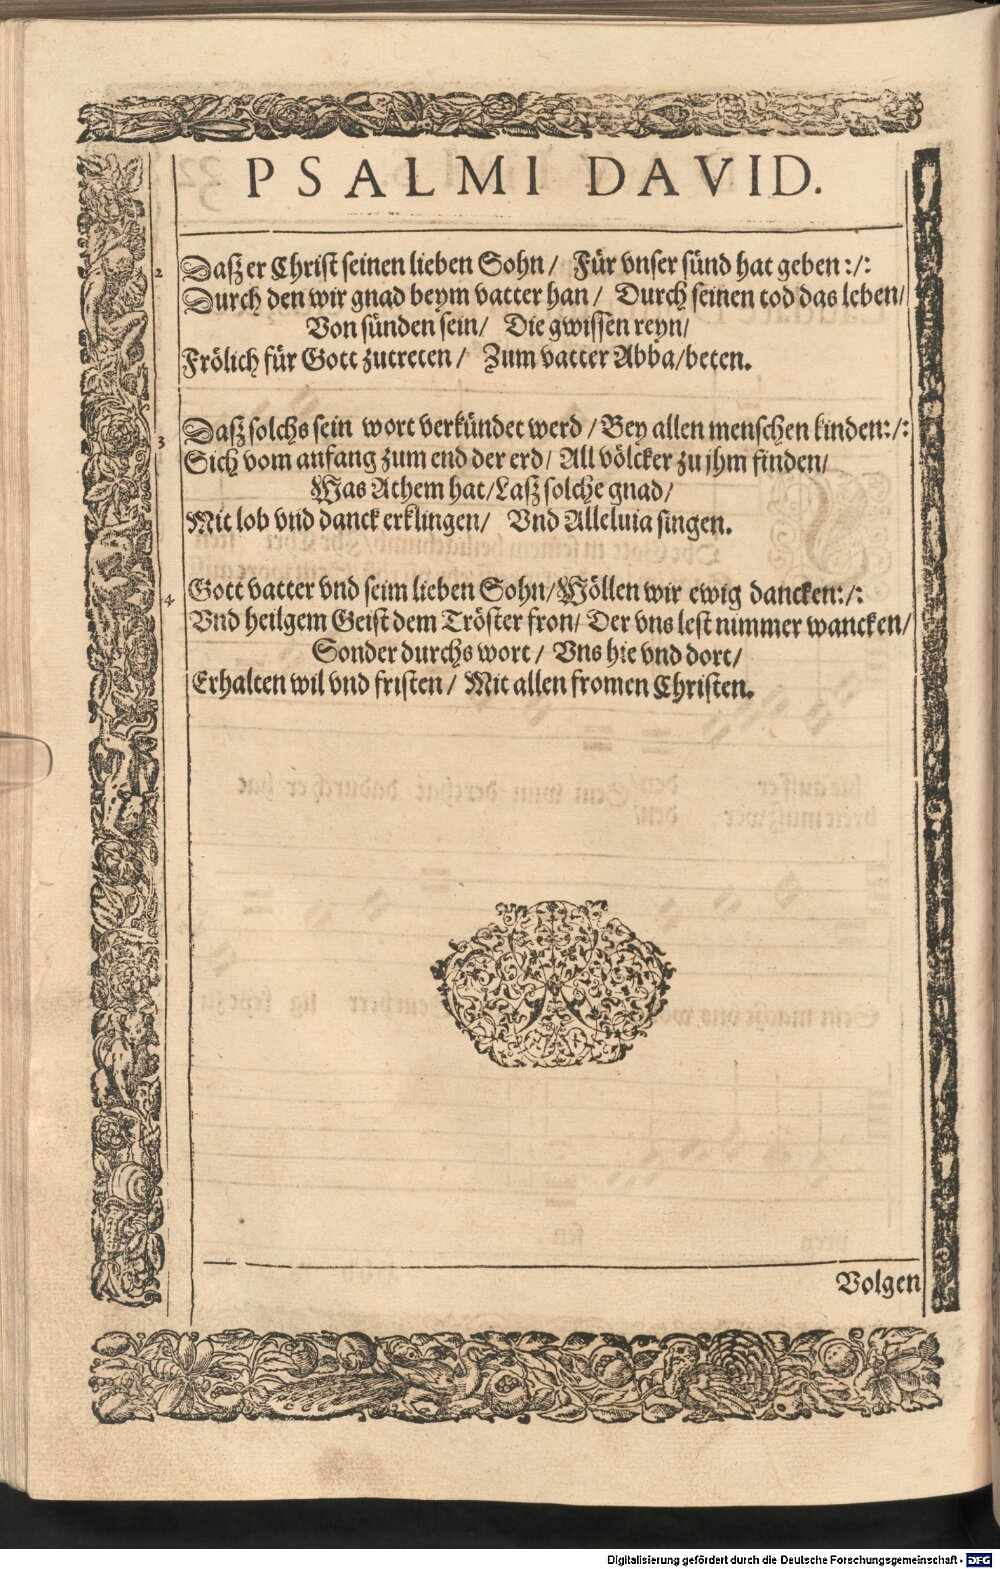 PSALMI DAVID.
2 Daß er Christ seinen lieben Sohn / Für vnser sünd hat geben :/:
Durch den wir gnad beym vatter han / Durch seinen tod das leben /
Von sünden sein / Die gwissen reyn /
Frölich für Gott zutreten / Zum vatter Abba / beten.
3 Daß solchs sein wort verkündet werd / Bey allen menschen kinden :/:
Sich vom anfang zum end der erd / All völcker zu jhm finden /
Was Athem hat / Laß solche gnad /
Mit lob vnd danck erklingen / Vnd Alleluia singen.
4. Gott vatter vnd seim lieben Sohn / Wöllen wir ewig dancken :/:
Vnd heilgem Geist dem Tröster fron / Der vns lest nimmer wancken /
Sonder durchs wort / Vns hie vnd dort /
Erhalten wil vnd fristen / Mit allen fromen Christen.
Volgen
Digitalisierung gefördert durch die Deutsche Forschungsgemeinschaft - DFG